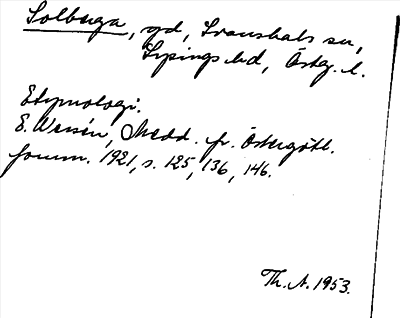 Solberga, gd, Svanshals sn,
Lysings hd, Österg. l.
Etymologi.
E. Wessén, Medd. fr. Östergötl.
fornm. 1921, s. 125, 136, 146.
Th. A. 1953.